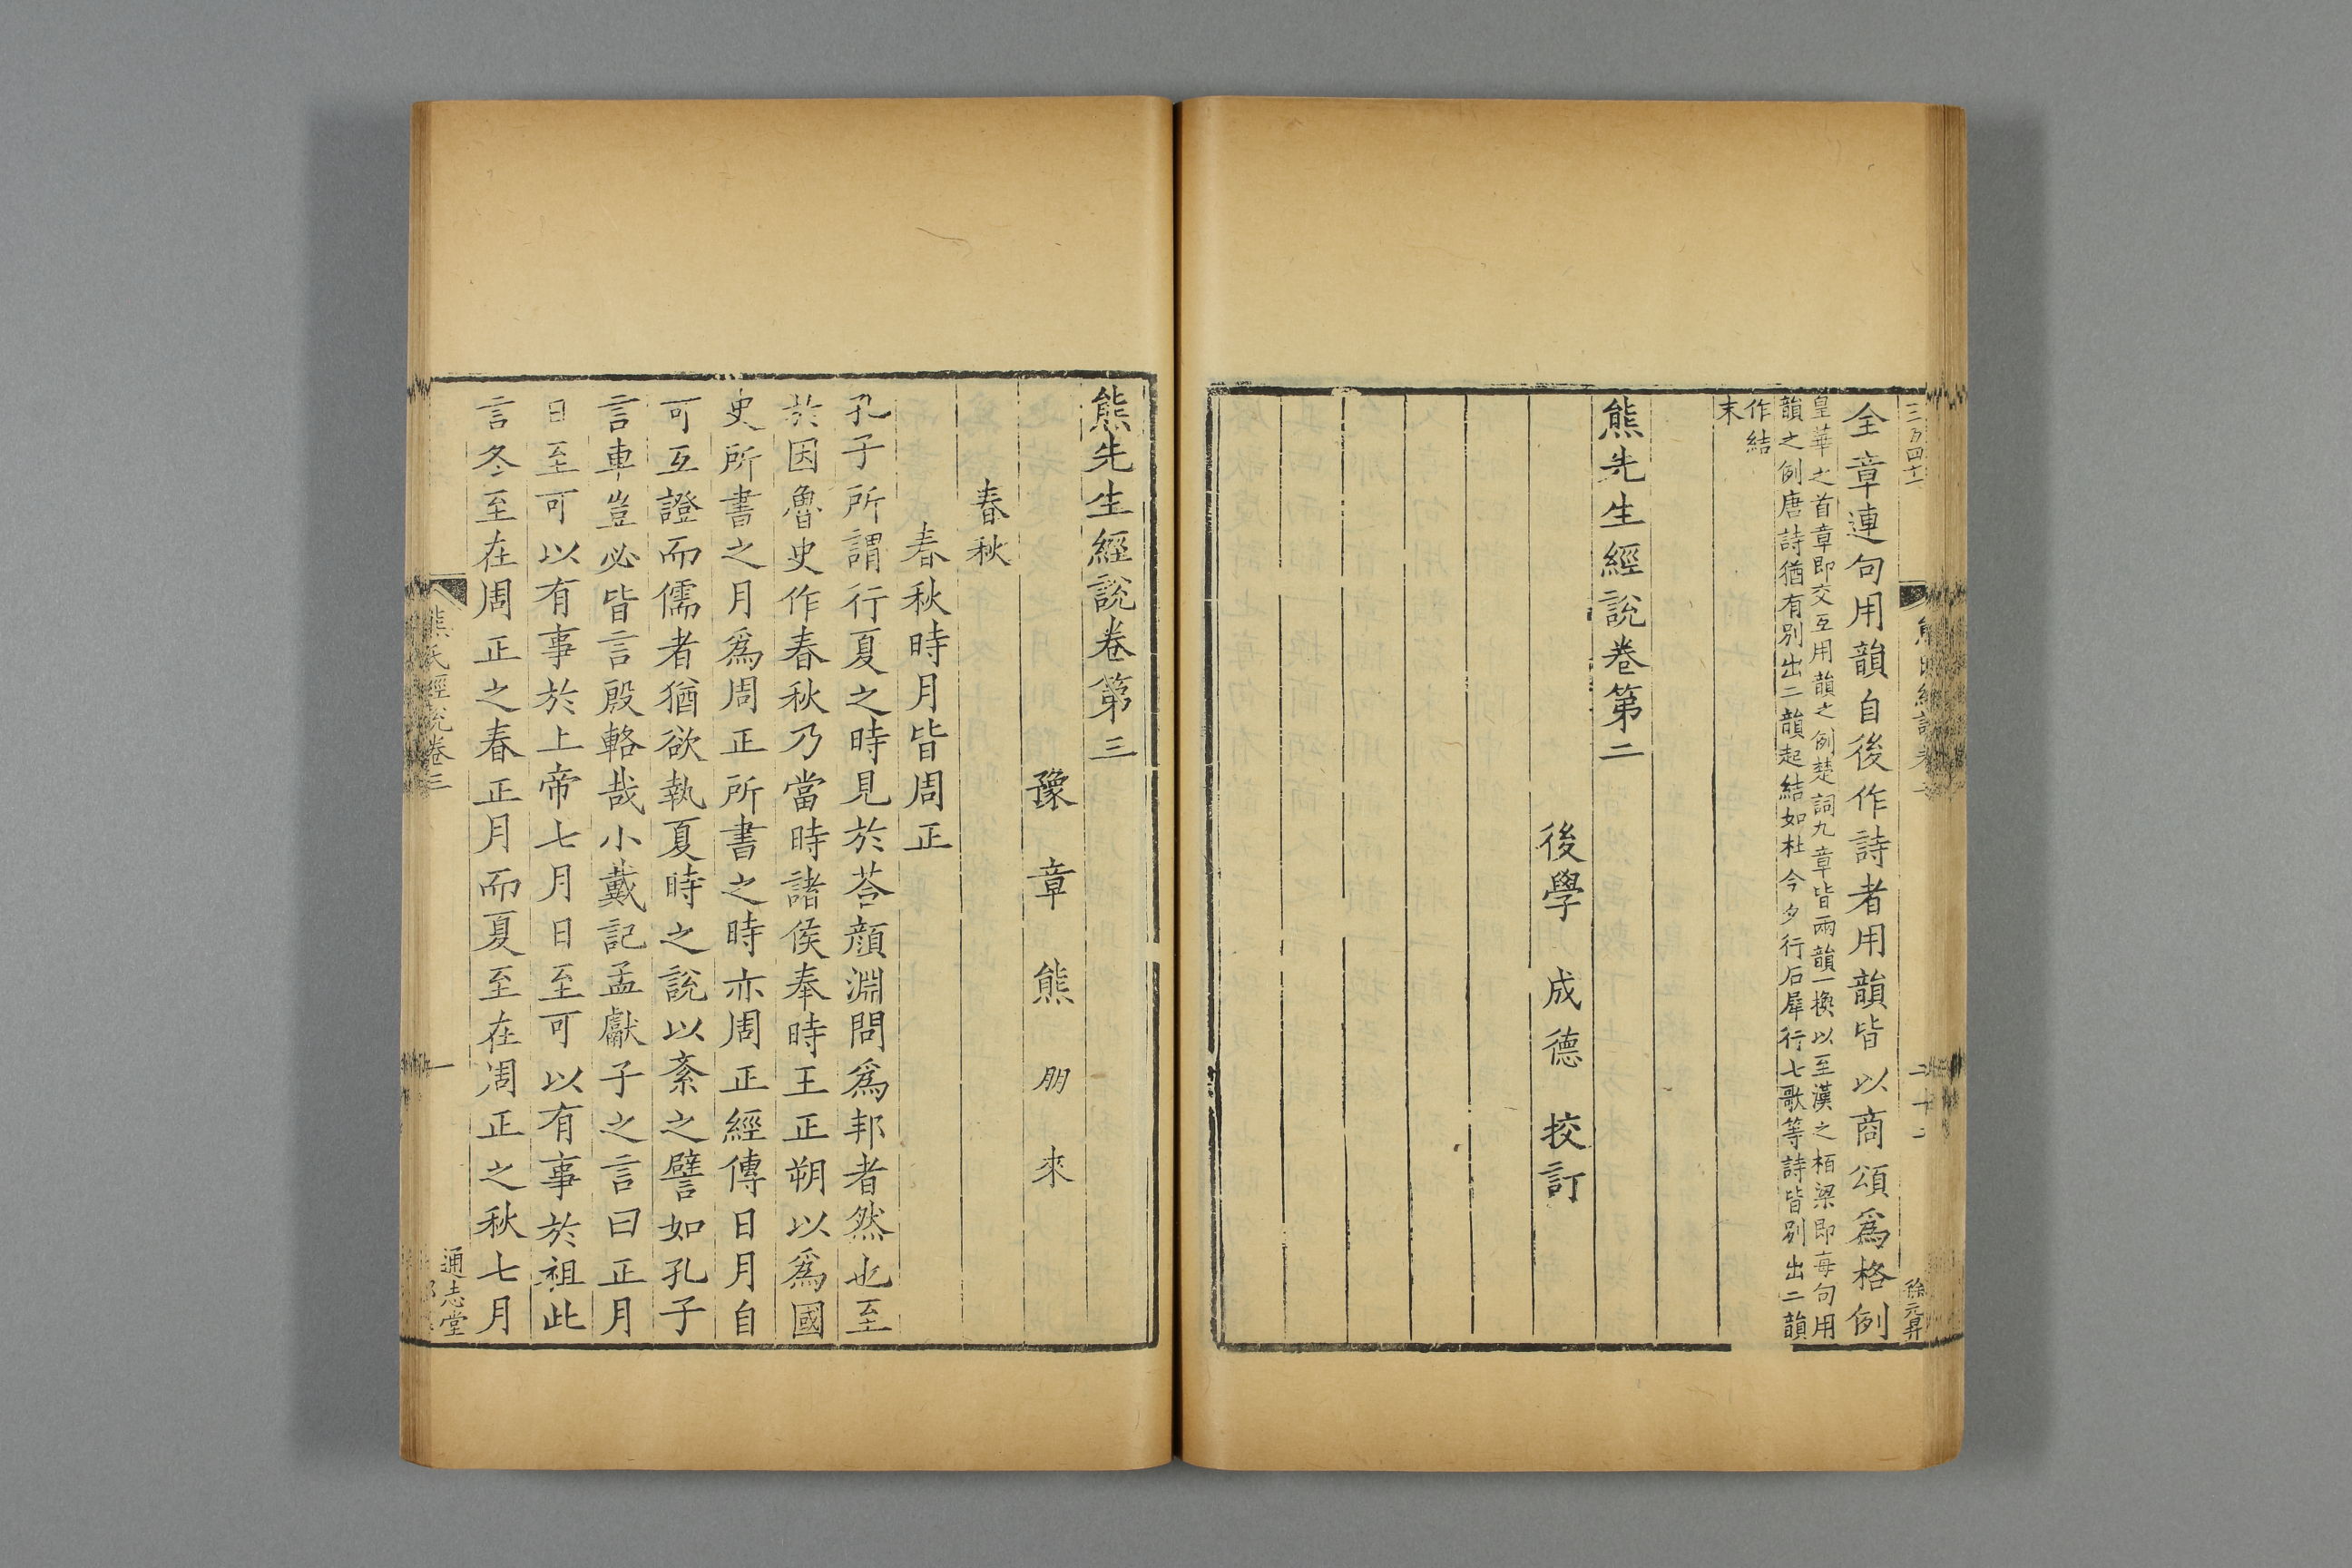 全章連句用韻自後作詩者用韻皆以商頌爲格例
皇華之首章即交互用韻之例楚詞九章皆兩韻一換以至漢之栢梁即每句用
韻之例唐詩猶有別出二韻起結如杜今夕行石犀行七歌等詩皆別出二韻
作結
末
熊先生經說卷第二
後學 成德 挍訂
熊先生經說卷第三
豫章熊朋來
春秋
春秋時月皆周正
孔子所謂行夏之時見於荅顔淵問爲邦者然也至
於因魯史作春秋乃當時諸侯奉時王正朔以爲國
史所書之月爲周正所書之時亦周正經傳日月自
可互證而儒者猶欲執夏時之說以紊之譬如孔子
言車豈必皆言殷輅哉小戴記孟獻子之言曰正月
日至可以有事於上帝七月日至可以有事於祖此
言冬至在周正之春正月而夏至在周正之秋七月
熊氏經說卷三
一
通志堂